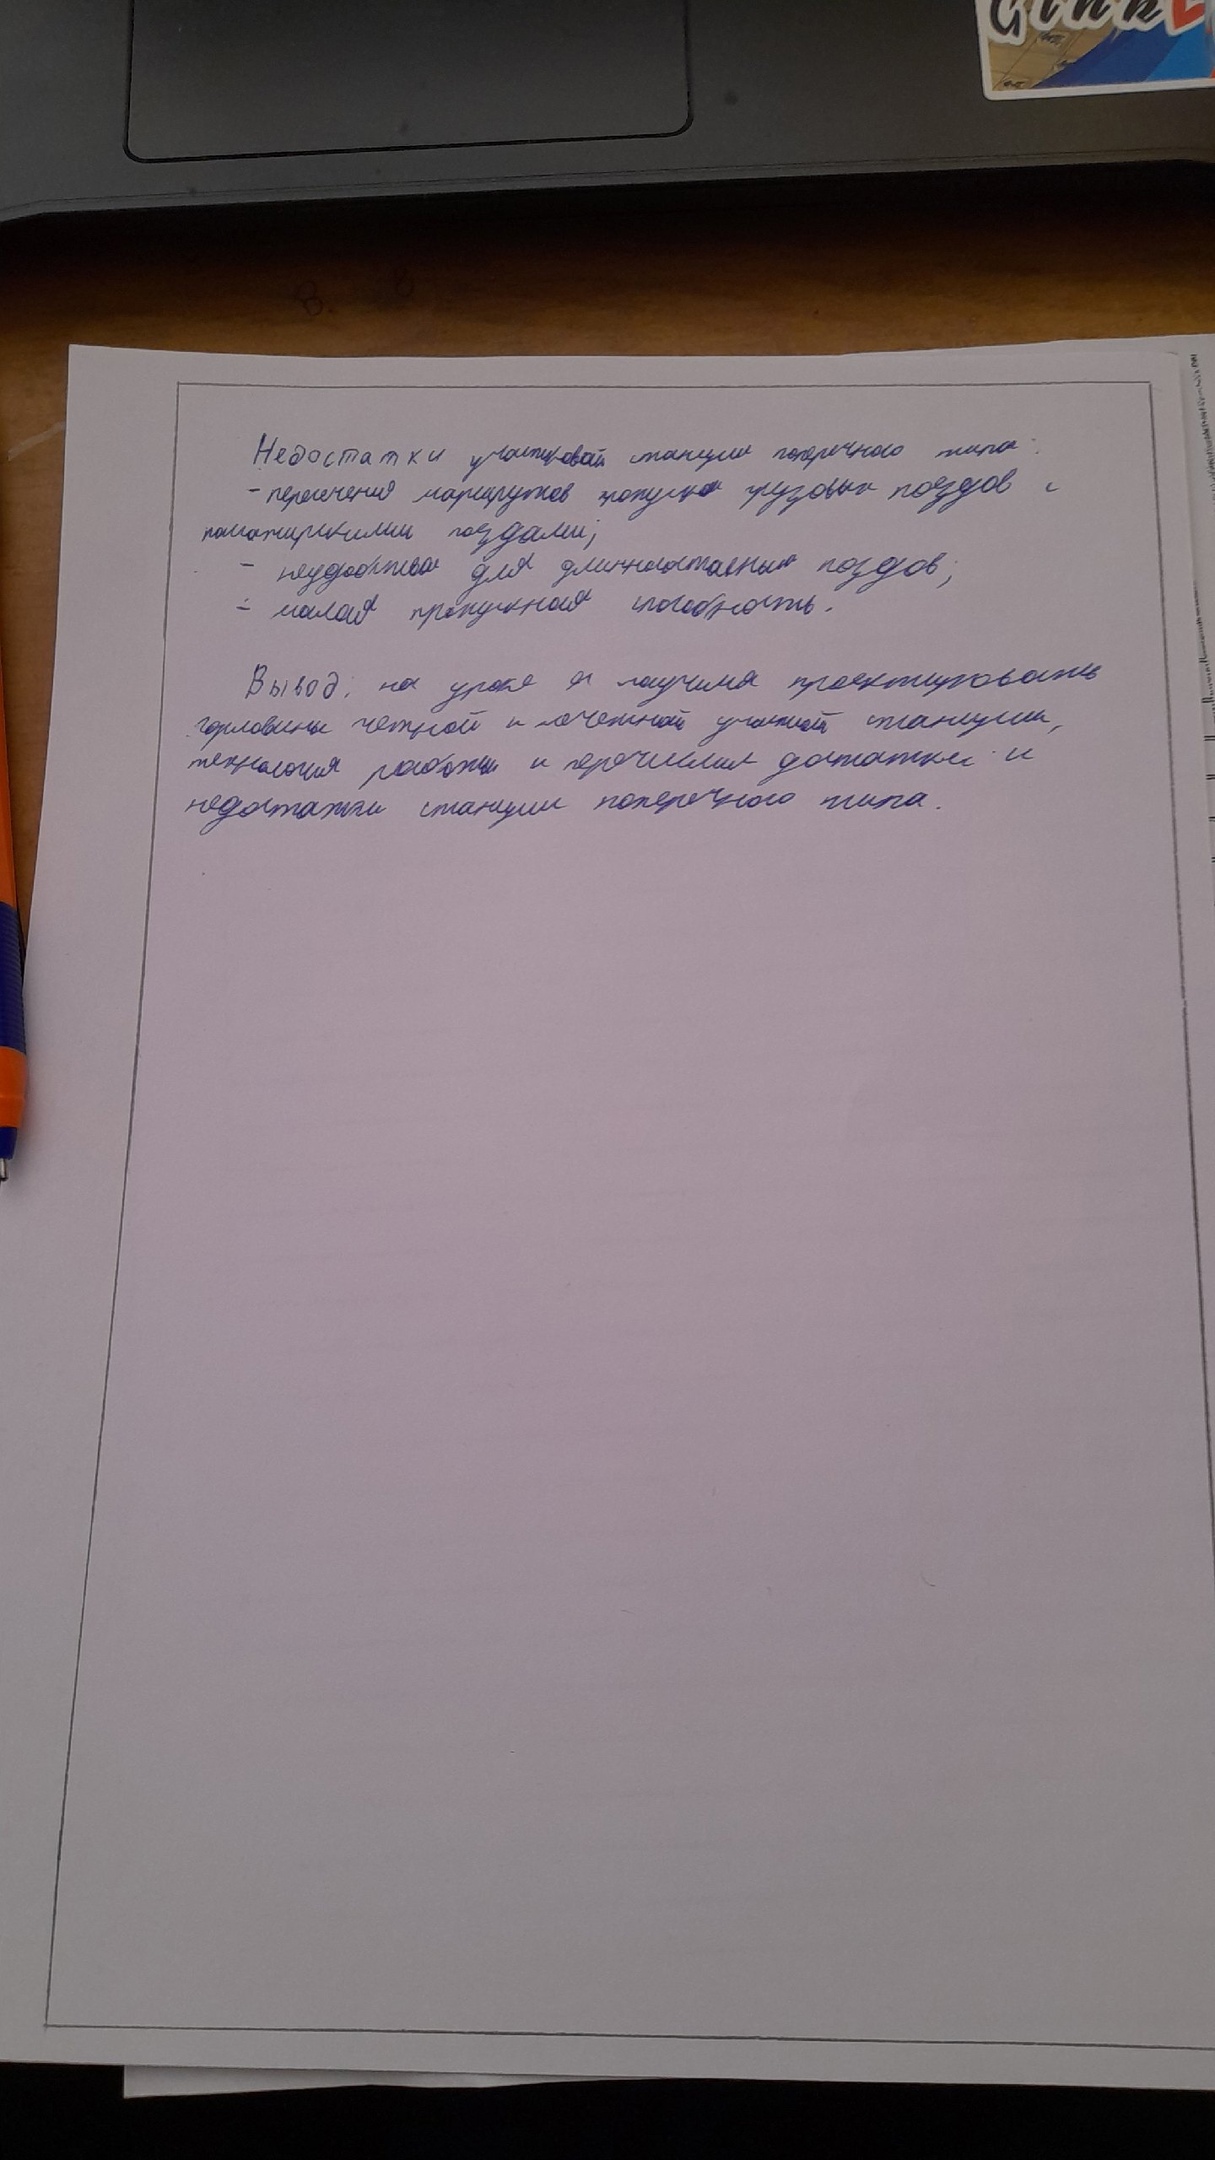 Недостатки участковой станции поперечного типа:
- пересечения маршрутов пропуска грузовых поездов с
пассажирскими поездами;
- неудобства для длинносоставных поездов;
- малая пропускная способность.
Вывод: на уроке я научился проектировать
горловины четной и нечетной участковой станции,
технология работы и перечислил достатки и
недостатки станции поперечного типа.